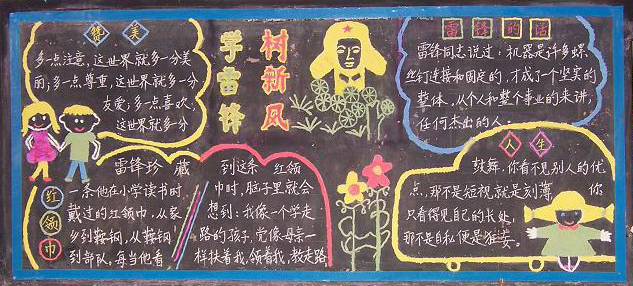 赞美
多点注意，这世界就多一分美
丽；多一点尊重，这世界就多一分
友爱；多一点喜欢，
这世界就多一分
学雷锋
树新风
雷锋的话
雷锋同志说过：机器是许多螺
丝钉连接和固定的，才成了一个坚实的
整体，从个人和整个事业的来讲，
任何杰出的人
红领巾
雷锋珍藏
一条他在小学读书时
戴过的红领巾，从家
乡到鞍钢，从鞍钢
到部队，每当他看
到这条红领
巾时，脑子里就会
想到：我像一个学走
路的孩子，党像母亲一
样扶着我，领着我，教走路
人生
鼓舞，你看不见别人的优
点，那不是短视就是刻薄 你
只看得见自己的长处，
那不是自私便是狂妄。